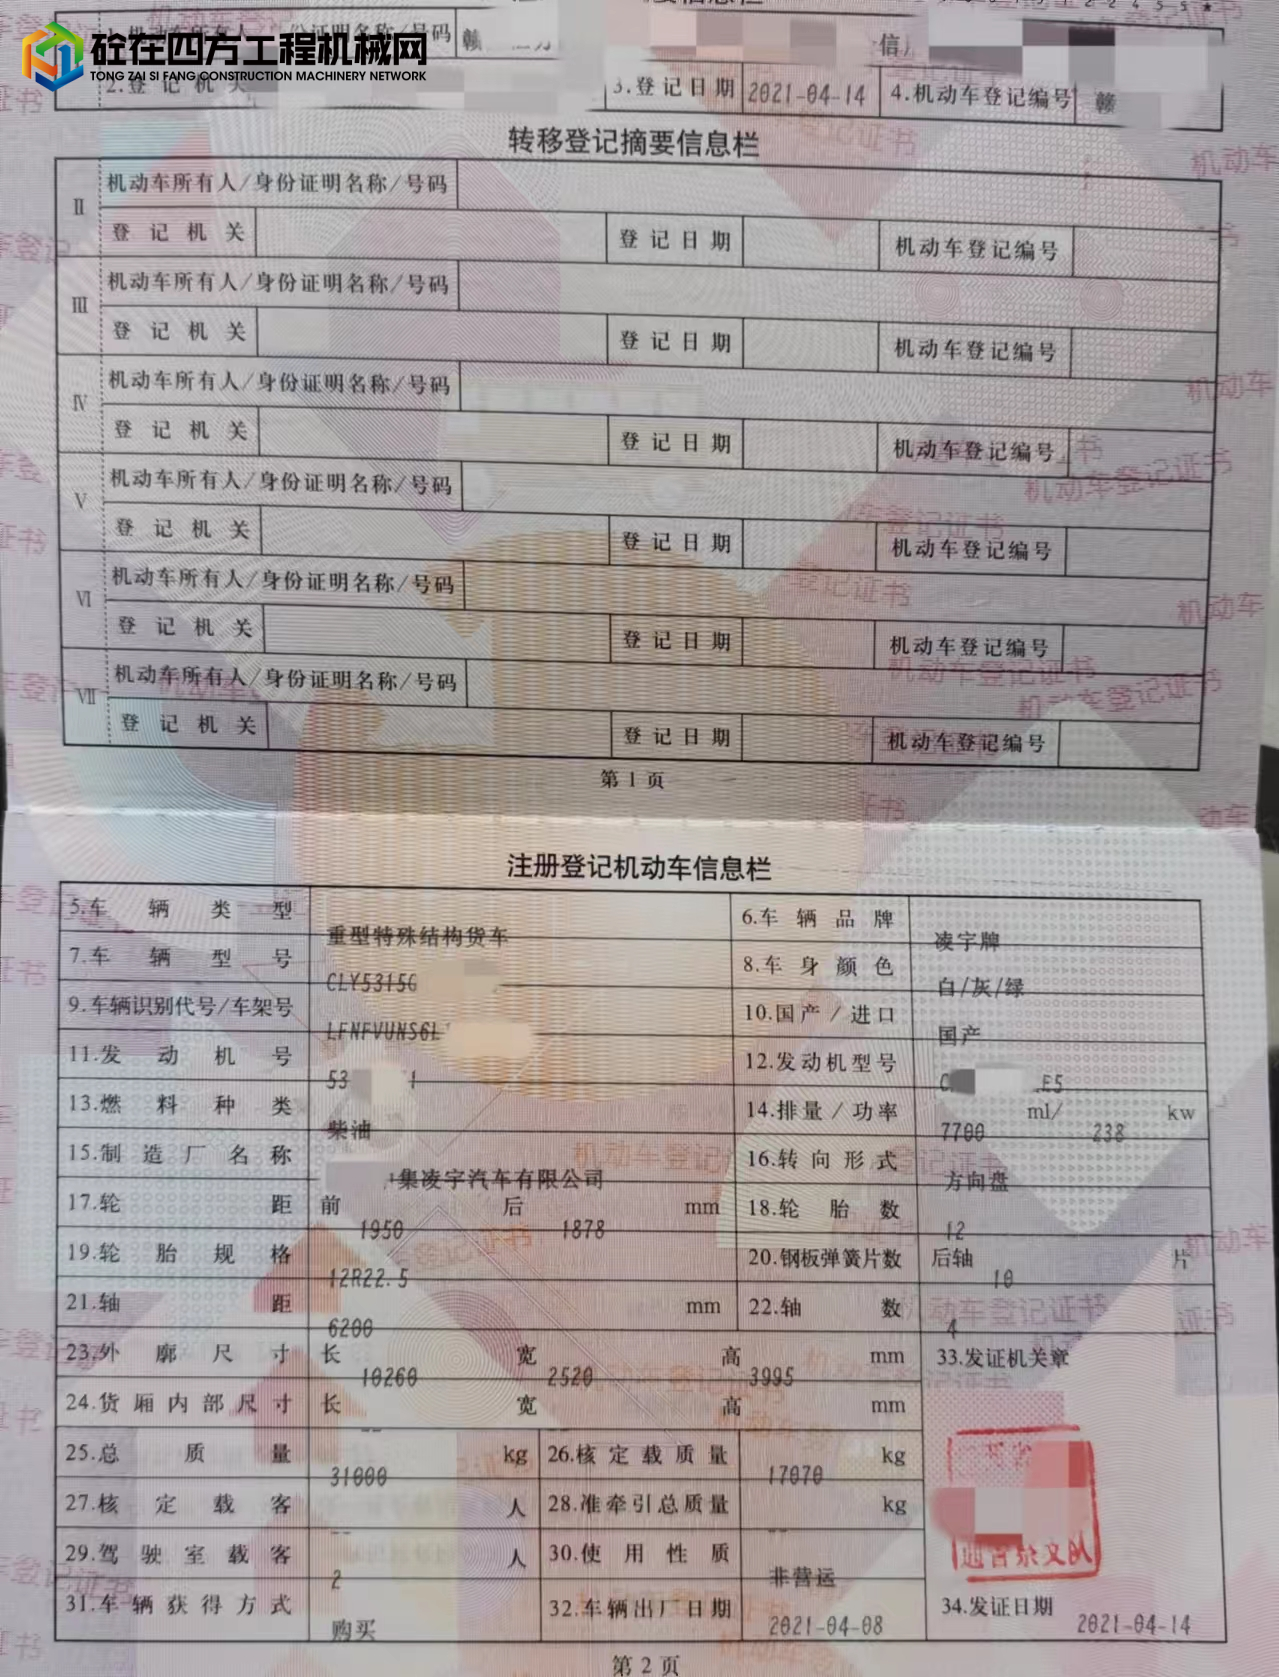 砼在四方工程机械网
TONG ZAI SI FANG CONSTRUCTION MACHINERY NETWORK
2.登记机关 3.登记日期 2021-04-14 4.机动车登记编号 赣
转移登记摘要信息栏
Ⅱ 机动车所有人/身份证明名称/号码
登记机关 登记日期 机动车登记编号
Ⅲ 机动车所有人/身份证明名称/号码
登记机关 登记日期 机动车登记编号
Ⅳ 机动车所有人/身份证明名称/号码
登记机关 登记日期 机动车登记编号
Ⅴ 机动车所有人/身份证明名称/号码
登记机关 登记日期 机动车登记编号
Ⅵ 机动车所有人/身份证明名称/号码
登记机关 登记日期 机动车登记编号
Ⅶ 机动车所有人/身份证明名称/号码
登记机关 登记日期 机动车登记编号
第 1 页
注册登记机动车信息栏
5.车辆类型 重型特殊结构货车 6.车辆品牌 凌宇牌
7.车辆型号 CLY5315G 8.车身颜色 白/灰/绿
9.车辆识别代号/车架号 LFNFVUNS6L 10.国产/进口 国产
11.发动机号 53 12.发动机型号 E5
13.燃料种类 柴油 14.排量/功率 7700 ml/ 238 kw
15.制造厂名称 集凌宇汽车有限公司 16.转向形式 方向盘
17.轮距 前 1950 后 1878 mm 18.轮胎数 12
19.轮胎规格 12R22.5 20.钢板弹簧片数 后轴 10 片
21.轴距 6200 mm 22.轴数 4
23.外廓尺寸 长 10260 宽 2520 高 3995 mm 33.发证机关章
24.货厢内部尺寸 长 -- 宽 高 mm
25.总质量 31000 kg 26.核定载质量 17070 kg
27.核定载客 -- 人 28.准牵引总质量 -- kg
29.驾驶室载客 2 人 30.使用性质 非营运
31.车辆获得方式 购买 32.车辆出厂日期 2021-04-08 34.发证日期 2021-04-14
第 2 页